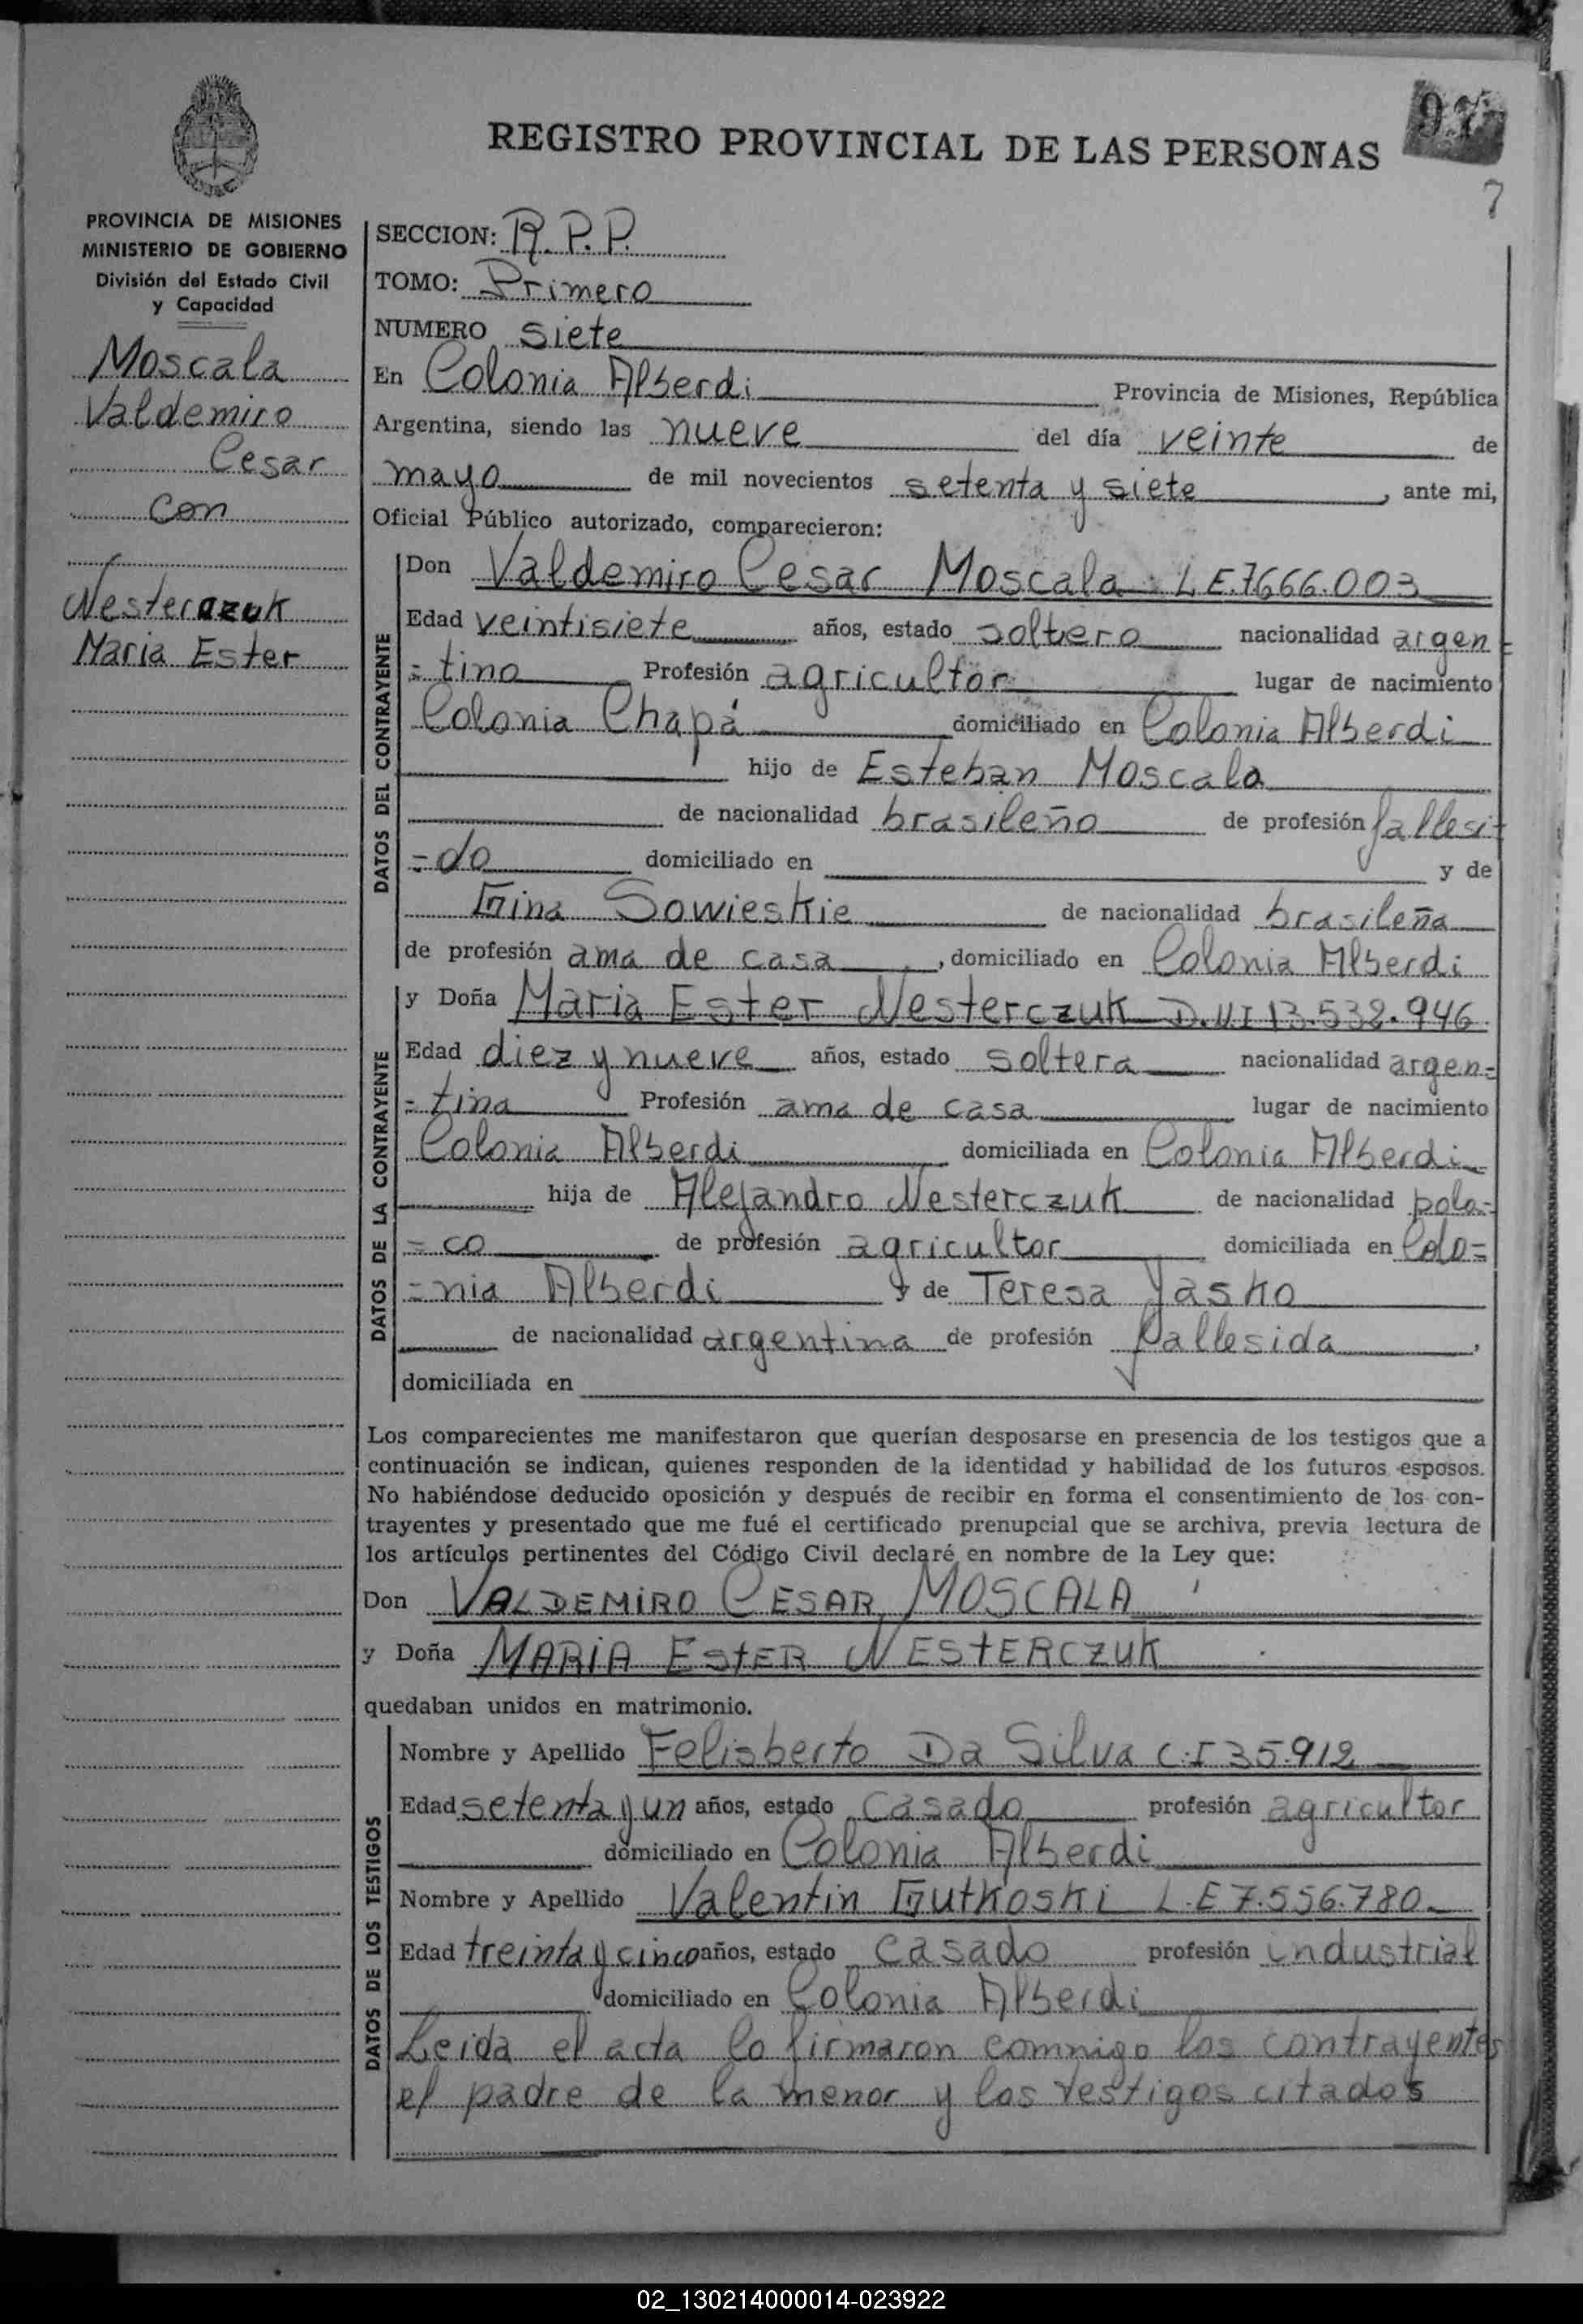 REGISTRO PROVINCIAL DE LAS PERSONAS
97
7
PROVINCIA DE MISIONES
MINISTERIO DE GOBIERNO
División del Estado Civil
y Capacidad
Moscala
Valdemiro
Cesar
con
Nesterczuk
Maria Ester
SECCION: R.P.P.
TOMO: Primero
NUMERO siete
En Colonia Alberdi Provincia de Misiones, República
Argentina, siendo las nueve del día veinte de
mayo de mil novecientos setenta y siete, ante mi,
Oficial Público autorizado, comparecieron:
DATOS DEL CONTRAYENTE
Don Valdemiro Cesar Moscala L.E.7666.003
Edad veintisiete años, estado soltero nacionalidad argen=
=tino Profesión agricultor lugar de nacimiento
Colonia Chapá domiciliado en Colonia Alberdi
hijo de Esteban Moscala
de nacionalidad brasileño de profesión fallesi=
=do domiciliado en y de
Gina Sowieskie de nacionalidad brasileña
de profesión ama de casa, domiciliado en Colonia Alberdi
DATOS DE LA CONTRAYENTE
y Doña Maria Ester Nesterczuk D.N.I 13.532.946
Edad diez y nueve años, estado soltera nacionalidad argen=
=tina Profesión ama de casa lugar de nacimiento
Colonia Alberdi domiciliada en Colonia Alberdi
hija de Alejandro Nesterczuk de nacionalidad pola=
=co de profesión agricultor domiciliada en Colo=
=nia Alberdi y de Teresa Yasko
de nacionalidad argentina de profesión fallesida,
domiciliada en
Los comparecientes me manifestaron que querían desposarse en presencia de los testigos que a
continuación se indican, quienes responden de la identidad y habilidad de los futuros esposos.
No habiéndose deducido oposición y después de recibir en forma el consentimiento de los con-
trayentes y presentado que me fué el certificado prenupcial que se archiva, previa lectura de
los artículos pertinentes del Código Civil declaré en nombre de la Ley que:
Don VALDEMIRO CESAR MOSCALA
y Doña MARIA ESTER NESTERCZUK
quedaban unidos en matrimonio.
DATOS DE LOS TESTIGOS
Nombre y Apellido Felisberto Da Silva C.I 35.912
Edad setenta y un años, estado casado profesión agricultor
domiciliado en Colonia Alberdi
Nombre y Apellido Valentin Gutkoski L.E 7.556.780
Edad treinta y cinco años, estado casado profesión industrial
domiciliado en Colonia Alberdi
Leida el acta lo firmaron conmigo los contrayentes
el padre de la menor y los testigos citados
02_130214000014-023922